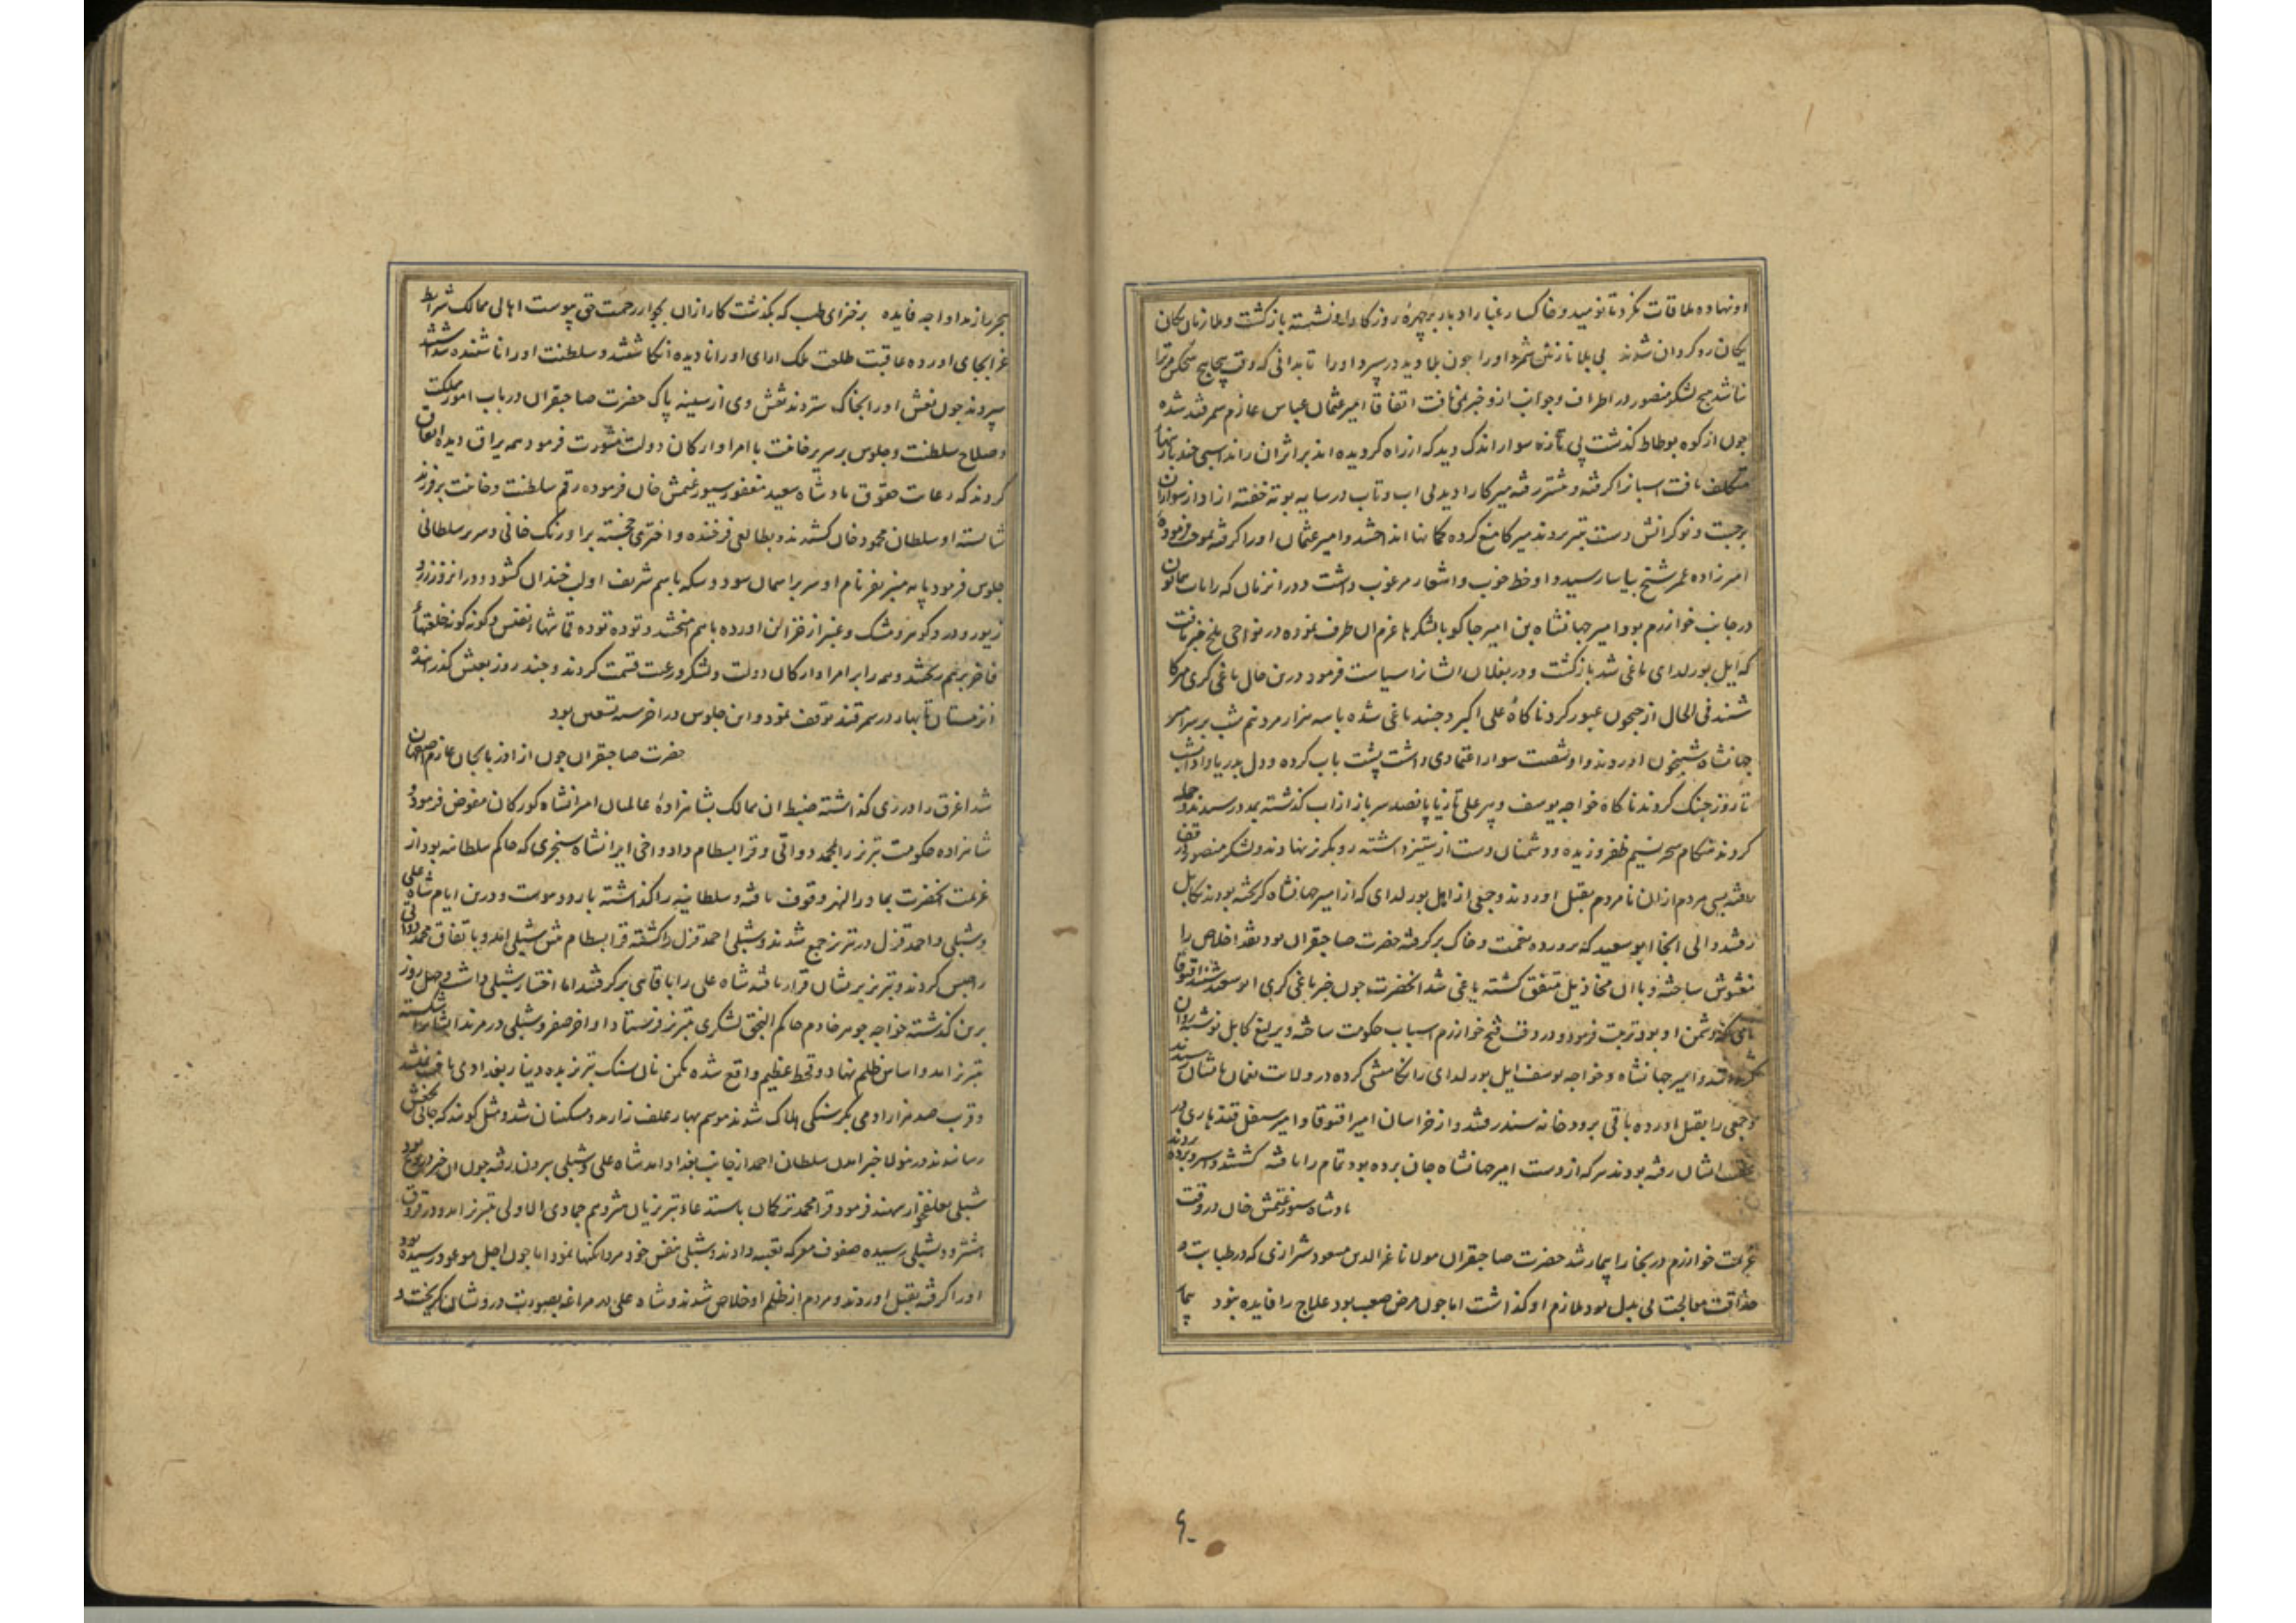 او نهاده ملاقات نکرد تا نومید و خاکسار غبار ادبار بر چهرۀ روزکار او نشسته بازکشت و ملازمان یکان
یکان روکردان شدند بی بلا نازنین شمرد او را چون بلا دید در سپرد او را تا بدانی که وقت پیچاپیچ هیچکس مر ترا
نباشد هیچ لشکر منصور در اطراف و جوانب ازو خبر نمی یافت اتفاقا امیر عثمان عباس عازم سمرقند شده
چون از کوه بوطاط کذشت پی تازه سوار اندک دید که از راه کردیده اند بر اثر ان راند اسبی چند بازنها
یافت اسبانرا کرفته و پیشتر رفته میرکا را دید بی اب و تاب در سایه بوته خفته از اواز سواران
برجست و نوکرانش دست بتیر بردند میرکا منع کرده کمانها انداختند و امیر عثمان او را کرفته بموجب فرمودۀ
امیرزاده عمر شیخ بیاسا رسید و او خط خوب و اشعار مرغوب داشت و در ان زمان که رایات همایون
در جانب خوارزم بود امیر جهانشاه بن امیر جاکو با لشکرها عزم ان طرف نموده در نواحی بلخ خبر یافت
که ایل بورلدای یاغی شد بازکشت و در بغلان ایشانرا سیاست فرمود درین حال یاغی کری میرکا
شنید فی الحال از جیحون عبور کرد ناکاه علی اکبر و جنید یاغی شده با سه هزار مرد نیم شب بر سر امیر
جهانشاه شبیخون اوردند و او شصت سوار اعتمادی داشت پشت باب کرده و دل بدریا داد ان شب
تا روز جنک کردند ناکاه خواجه یوسف و پیر علی تاز با پانصد سرباز از اب کذشته بمدد رسیدند و حمله
کردند هنکام سحر نسیم ظفر وزیده و دشمنان دست از ستیز داشته رو بکریز نهادند و لشکر منصور در قفا
رفته بسی مردم ازان نامردم بقتل اوردند و جمعی از ایل بورلدای که از امیر جهانشاه کریخته بودند بکابل
رفتند والی انجا ابوسعید که پرورده نعمت و خاک برکرفته حضرت صاحبقران بود نقد اخلاص را
مغشوش ساخته و با ان مخاذیل متفق کشته یاغی شد انحضرت چون خبر یاغی کری ابوسعید شنید اقتوقا
نامی که دشمن او بود تربیت فرمود و در وقت فتح خوارزم اسباب حکومت ساخته و یرلیغ کابل نوشته روان
و امیر جهانشاه و خواجه یوسف ایل بورلدای را تکامشی کرده در ولایت نغمان بایشان رسیدند
و جمعی را بقتل اورده باقی برودخانه سند رفتند و از خراسان امیر اقتوقا و امیر سیفل قندهاری در
عقب ایشان رفته بودند هر که از دست امیر جهانشاه جان برده بود تمام را یافته کشتند و اسیر و برده بردند
پادشاه سیورغتمش خان در وقت
عزیمت خوارزم در بخارا بیمار شد حضرت صاحبقران مولانا عز الدین مسعود شیرازی که در طبابت و
حذاقت معالجت بی بدیل بود ملازم او کذاشت اما چون مرض صعب بود علاج را فایده نبود
۶۰
بجر راز مداوا چه فایده بر فنزای طب که بکذشت کار ازان بجوار رحمت حق پیوست اهالی ممالک شرایط
عزا بجای اورده عاقبت طلعت ملک ارای او را نادیده انکاشتند و سلطنت او را ناشنیده شناختند
سپردند چون نعش او را بخاک ستردند نقش وی از سینه پاک حضرت صاحبقران در باب امور مملکت
و صلاح سلطنت و جلوس بر سریر خانیت با امرا و ارکان دولت مشورت فرمود همه یراق دیده اتفاق
کردند که رعایت حقوق پادشاه سعید مغفور سیورغتمش خان فرموده رقم سلطنت و خانیت بر فرزند
شایسته او سلطان محمود خان کشیدند و بطالعی فرخنده و اختری خجسته بر اورنک خانی و سریر سلطانی
جلوس فرمود پایه منبر بفر نام او سر بر اسمان سود و سکه باسم شریف او لب خندان کشود و در انروز زر و
زیور و در و کوهر و مشک و عنبر از خزائن اورده باهم امیختند و توده توده قماشهای نفیس و کونه کونه خلعتهای
فاخر بر هم ریختند و همه را بر امرا و ارکان دولت و لشکر و رعیت قسمت کردند و چند روز بعیش کذرانیده
از زمستان تا بهار در سمرقند توقف نمود و این جلوس در اخر سنه تسعین بود
حضرت صاحبقران چون از اذربایجان عازم اصفهان
شد اغرق را در ری کذاشته ضبط ان ممالک بشاهزادۀ عالمیان امیرانشاه کورکان مفوض فرمود و
شاهزاده حکومت تبریز را بمحمد دواتی و قرا بسطام داد و اخی ایرانشاه سنجری که حاکم سلطانیه بود از
عزیمت انحضرت بماوراء النهر وقوف یافته و سلطانیه را کذاشته باردو پیوست و درین ایام شاه علی
و شبلی و احمد قزل در تبریز جمع شدند و شبلی احمد قزل را کشته قرا بسطام پیش شبلی امد و باتفاق محمد دواتی
را حبس کردند و تبریز بریشان قرار یافته شاه علی را باقاسی برکرفتند اما اختیار شبلی داشت و چهل روز
برین کذشته خواجه جوهر خادم حاکم النجق لشکری بتبریز فرستاد و اواخر صفر و شبلی در مرند ایشانرا شکسته
بتبریز امد و اساس ظلم نهاد و قحط عظیم واقع شده یکمن نان بسنک تبریز بده دینار بغدادی یافت نمیشد
و قرب صد هزار ادمی بکرسنکی هلاک شدند موسم بهار علف زار مدد مسکینان شد و مثل کویند که جانی بنجفش
رسانیدند در نولا خبر امدن سلطان احمد از جانب بغداد امد شاه علی و شبلی بیرون رفته چون ان خبر دروغ بود
شبلی بعلفخوار سهند فرمود قرا محمد ترکمان باستدعاء تبریزیان هژدهم جمادی الاولی بتبریز امد و در قروق
هشترود بشبلی رسیده صفوف معرکه تعبیه دادند و شبلی بنفس خود مردانکیها نمود اما چون اجل موعود رسیده بود
او را کرفته بقتل اوردند و مردم از ظلم او خلاص شدند و شاه علی در مراغه بصورت درویشان بکریخت و